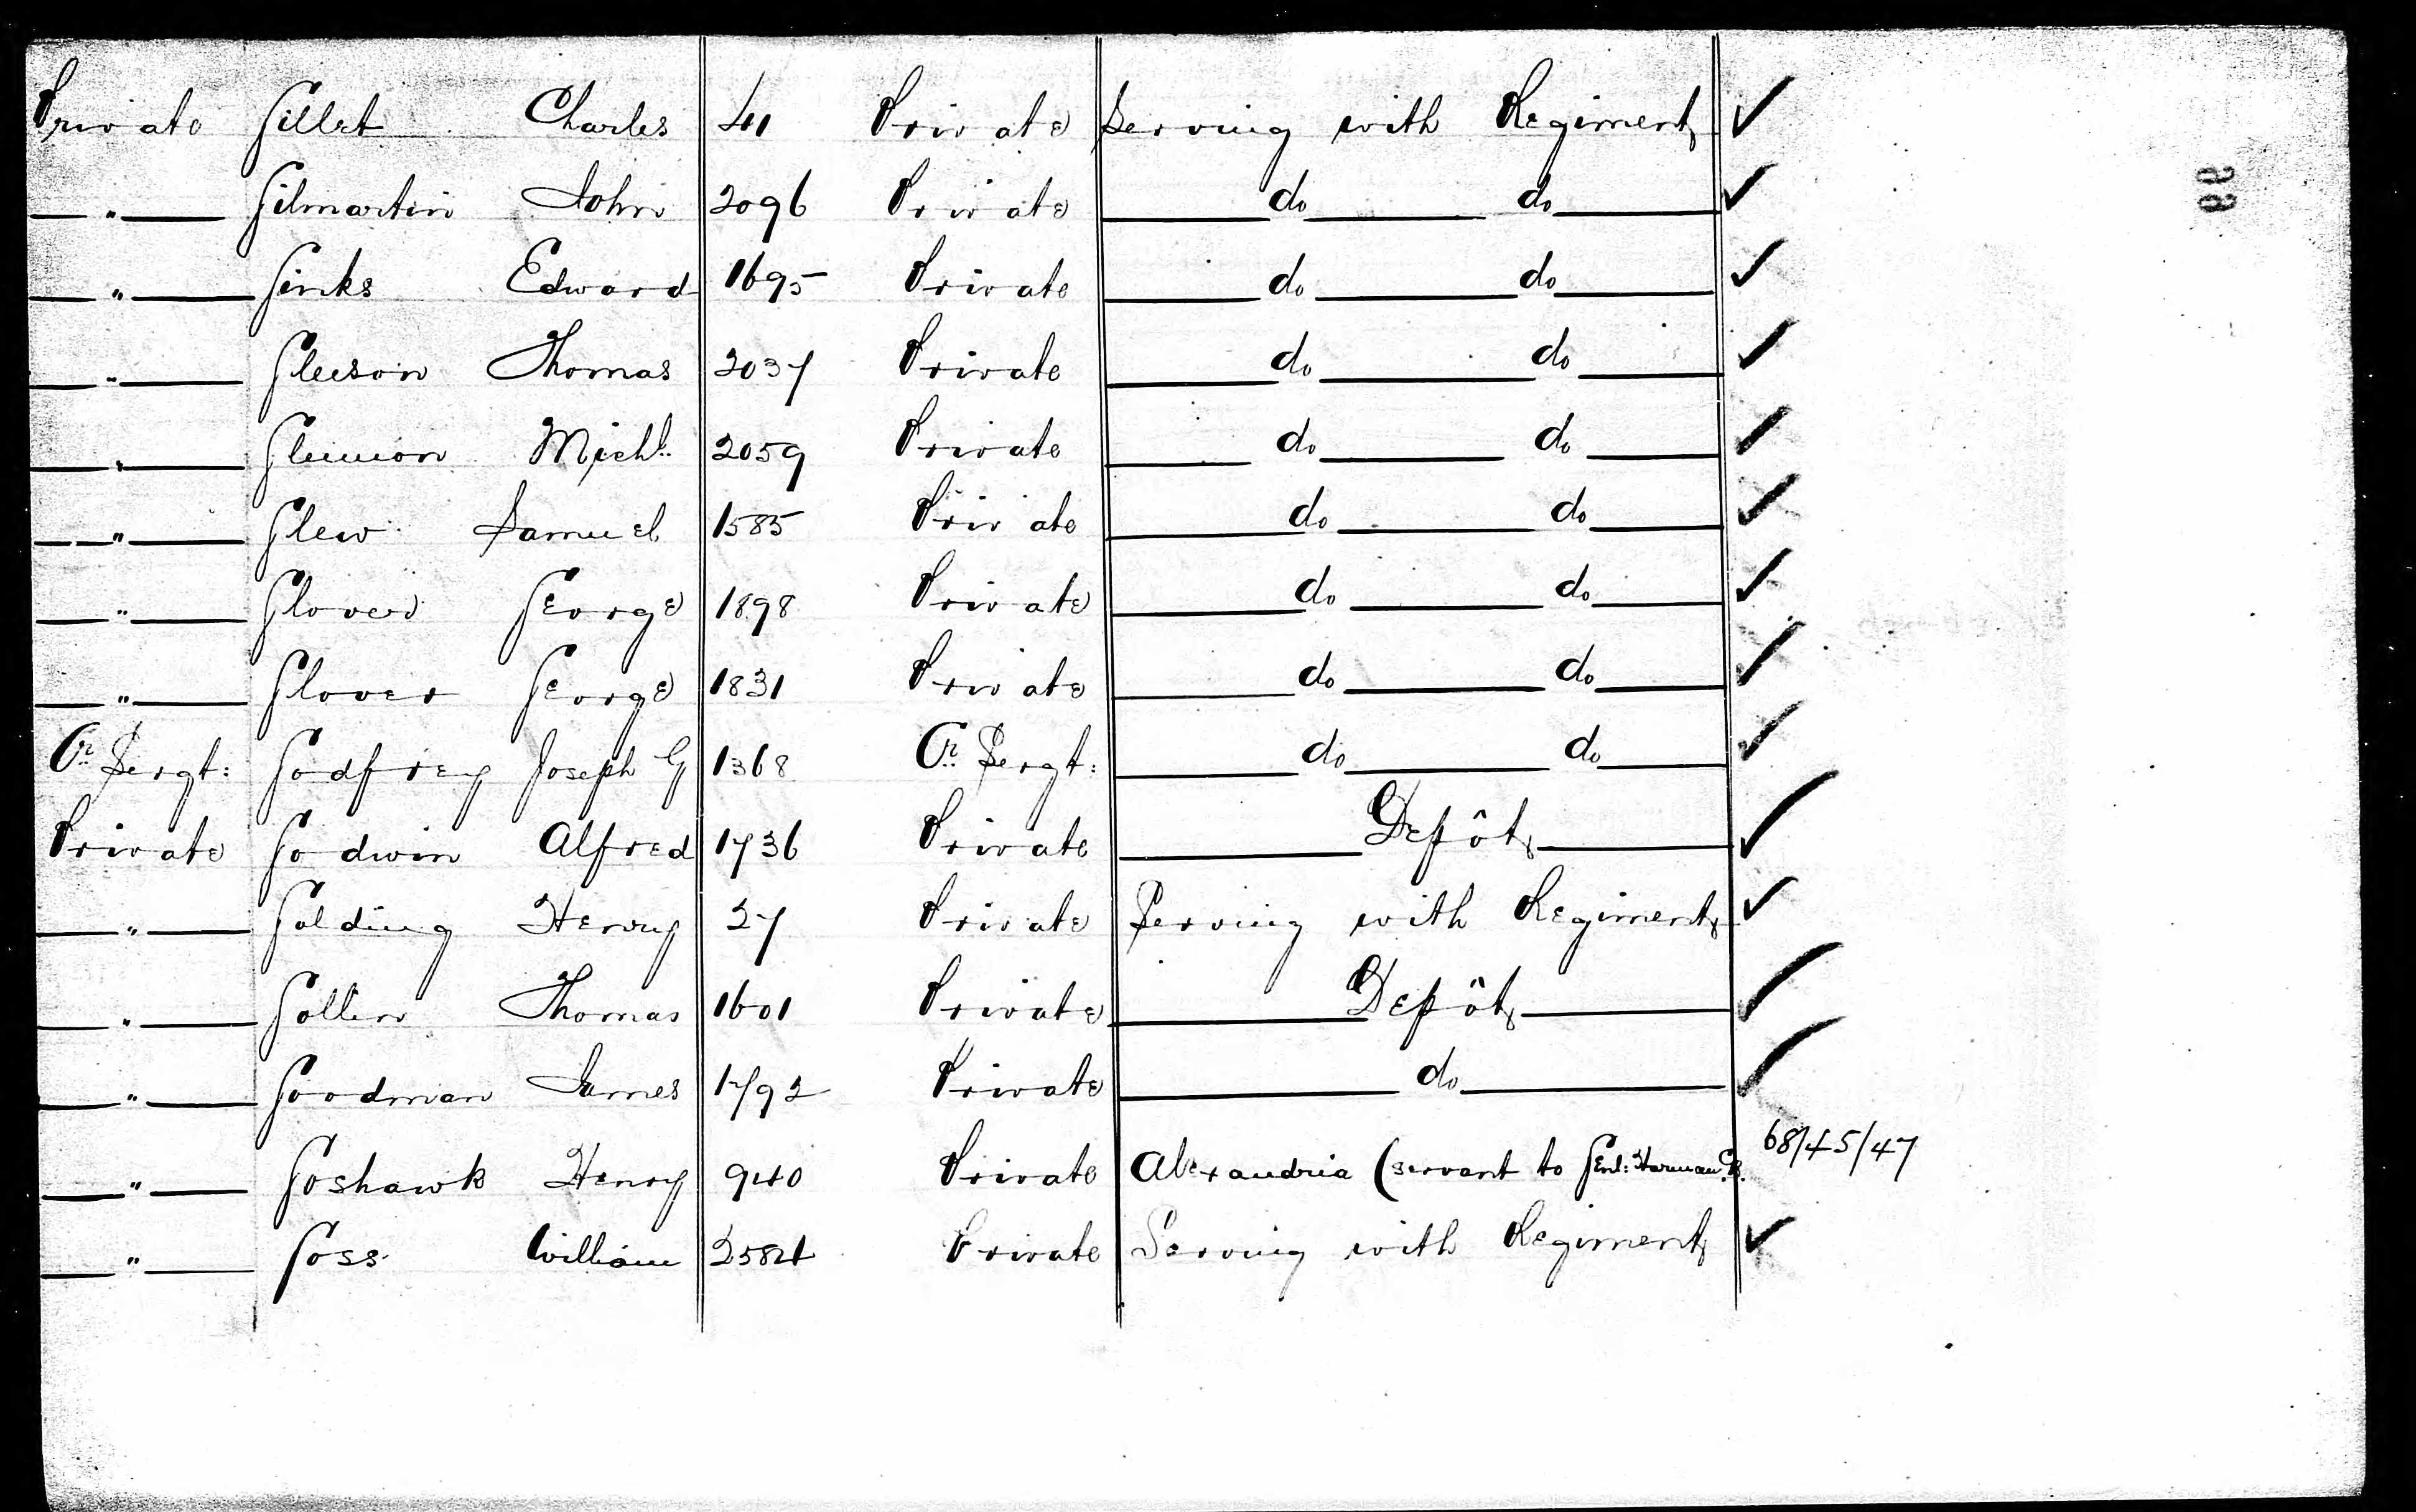 Private Gillet Charles 41 Private Serving with Regiment
" Gilmartin John 2096 Private do do
" Ginks Edward 1695 Private do do
" Gleeson Thomas 2037 Private do do
" Glennon Michl. 2059 Private do do
" Glew Samuel 1585 Private do do
" Glover George 1898 Private do do
" Glover George 1831 Private do do
Cr. Sergt: Godfrey Joseph G 1368 Cr. Sergt: do do
Private Godwin Alfred 1736 Private Depôt
" Golding Henry 27 Private Serving with Regiment
" Gollin Thomas 1601 Private Depôt
" Goodman James 1792 Private do
" Goshawk Henry 940 Private Alexandria (servant to Genl: Harman C.B. 68/45/47
" Goss William 2584 Private Serving with Regiment